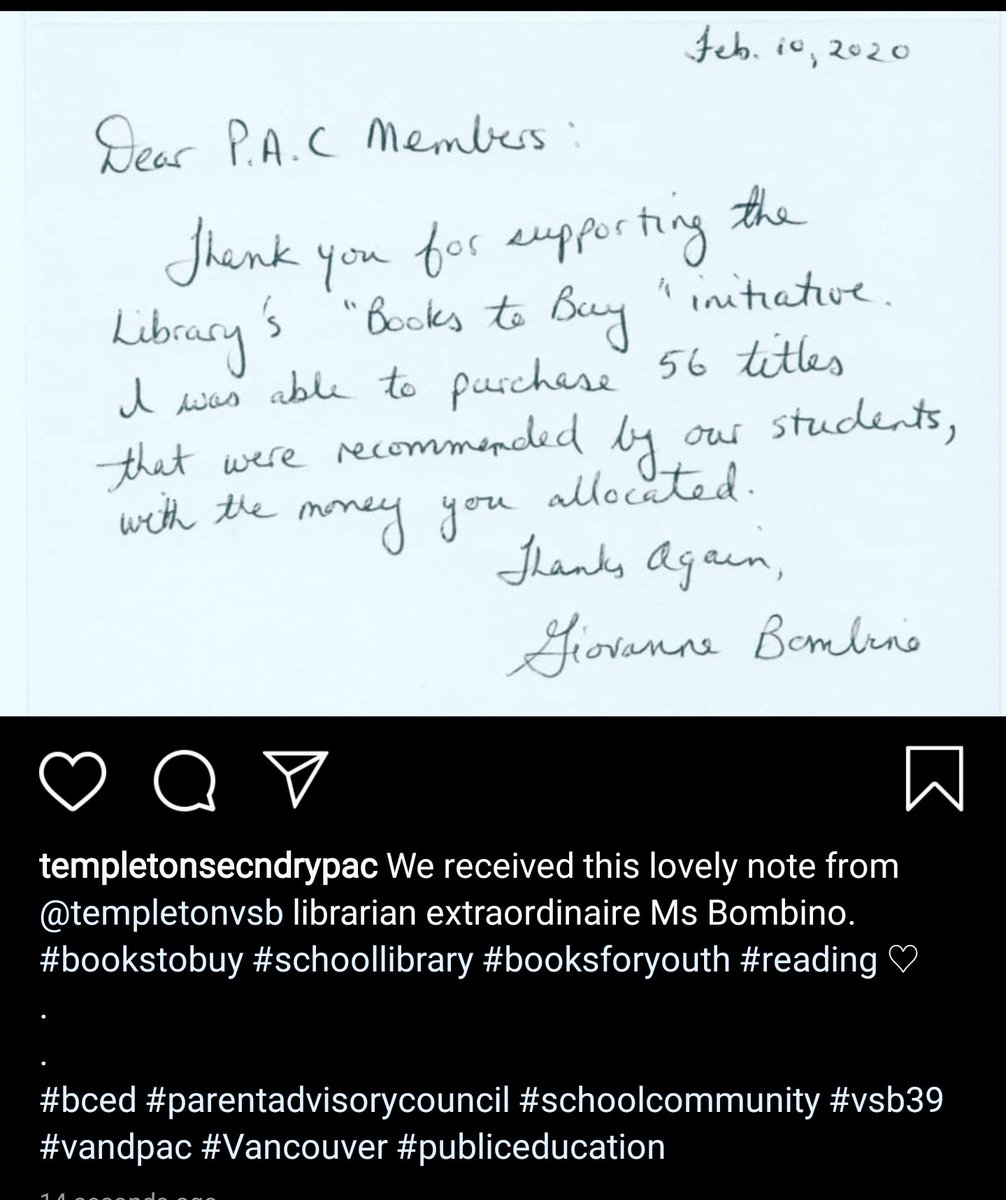 Feb. 10, 2020
Dear P.A.C Members:
Thank you for supporting the
Library's "Books to Buy" initiative.
I was able to purchase 56 titles
that were recommended by our students,
with the money you allocated.
Thanks Again,
Giovanna Bombino
templetonsecndrypac We received this lovely note from
@templetonvsb librarian extraordinaire Ms Bombino.
#bookstobuy #schoollibrary #booksforyouth #reading ♡
.
.
#bced #parentadvisorycouncil #schoolcommunity #vsb39
#vandpac #Vancouver #publiceducation
14 seconds ago